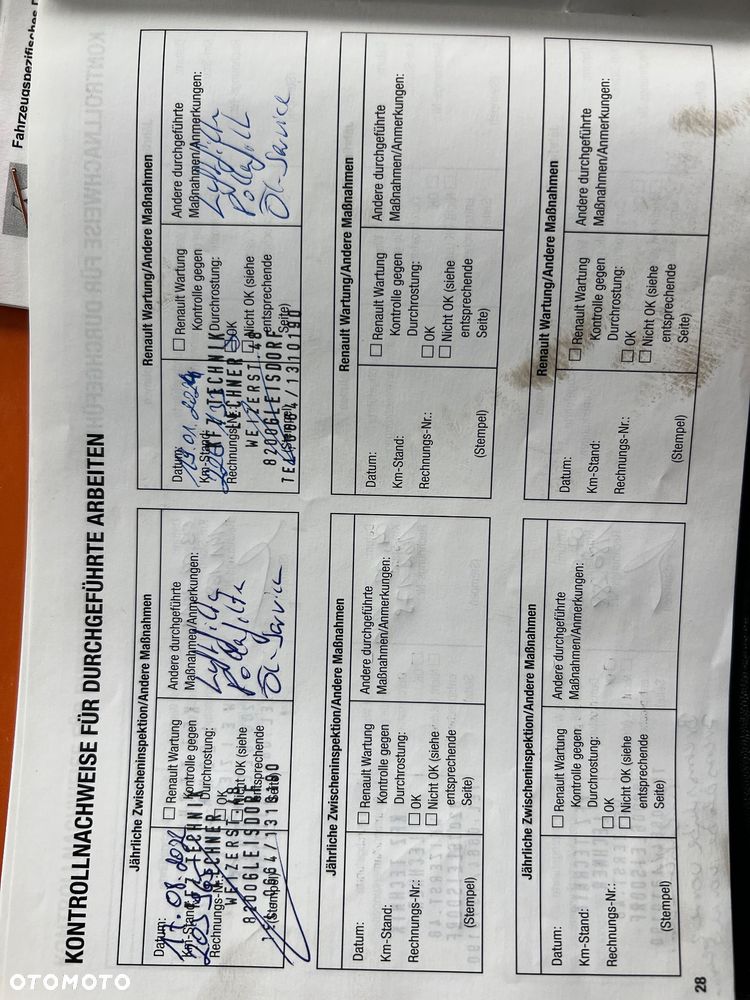 Fahrzeugspezifisches
KONTROLLNACHWEISE FÜR DURCHGEFÜHRTE ARBEITEN
Jährliche Zwischeninspektion/Andere Maßnahmen
Datum:
17.08.2022
Km-Stand:
Rechnungs-Nr.:
(Stempel)
KFZ TECHNIK
LECHNER
WEIZERST.48
8200GLEISDORF
TEL.0664/1310190
Renault Wartung
Kontrolle gegen
Durchrostung:
OK
Nicht OK (siehe
entsprechende
Seite)
Andere durchgeführte
Maßnahmen/Anmerkungen:
Luftfilter
Pollenfilter
Öl-Service
Renault Wartung/Andere Maßnahmen
Datum:
19.01.2024
Km-Stand:
Rechnungs-Nr.:
(Stempel)
KFZ TECHNIK
LECHNER
WEIZERST.48
8200GLEISDORF
TEL.0664/1310190
Renault Wartung
Kontrolle gegen
Durchrostung:
OK
Nicht OK (siehe
entsprechende
Seite)
Andere durchgeführte
Maßnahmen/Anmerkungen:
Luftfilter
Pollenfilt
Öl-Service
Jährliche Zwischeninspektion/Andere Maßnahmen
Datum:
Km-Stand:
Rechnungs-Nr.:
(Stempel)
Renault Wartung
Kontrolle gegen
Durchrostung:
OK
Nicht OK (siehe
entsprechende
Seite)
Andere durchgeführte
Maßnahmen/Anmerkungen:
Renault Wartung/Andere Maßnahmen
Datum:
Km-Stand:
Rechnungs-Nr.:
(Stempel)
Renault Wartung
Kontrolle gegen
Durchrostung:
OK
Nicht OK (siehe
entsprechende
Seite)
Andere durchgeführte
Maßnahmen/Anmerkungen:
Jährliche Zwischeninspektion/Andere Maßnahmen
Datum:
Km-Stand:
Rechnungs-Nr.:
(Stempel)
Renault Wartung
Kontrolle gegen
Durchrostung:
OK
Nicht OK (siehe
entsprechende
Seite)
Andere durchgeführte
Maßnahmen/Anmerkungen:
Renault Wartung/Andere Maßnahmen
Datum:
Km-Stand:
Rechnungs-Nr.:
(Stempel)
Renault Wartung
Kontrolle gegen
Durchrostung:
OK
Nicht OK (siehe
entsprechende
Seite)
Andere durchgeführte
Maßnahmen/Anmerkungen:
28
OTOMOTO